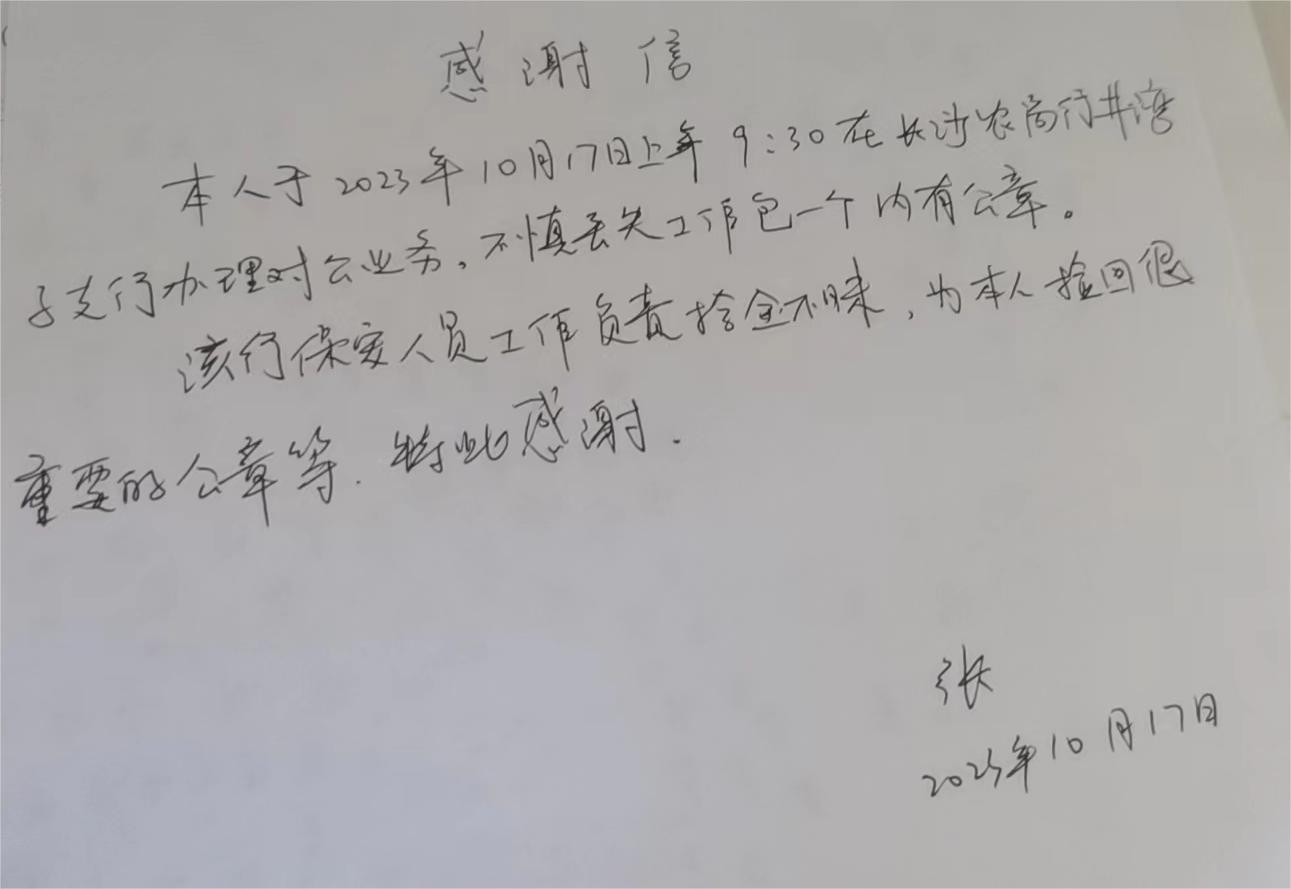 感谢信
本人于2023年10月17日上午9:30在长沙农商行井湾
子支行办理对公业务，不慎丢失工作包一个内有公章。
该行保安人员工作负责拾金不昧，为本人捡回很
重要的公章等．特此感谢．
张
2023年10月17日